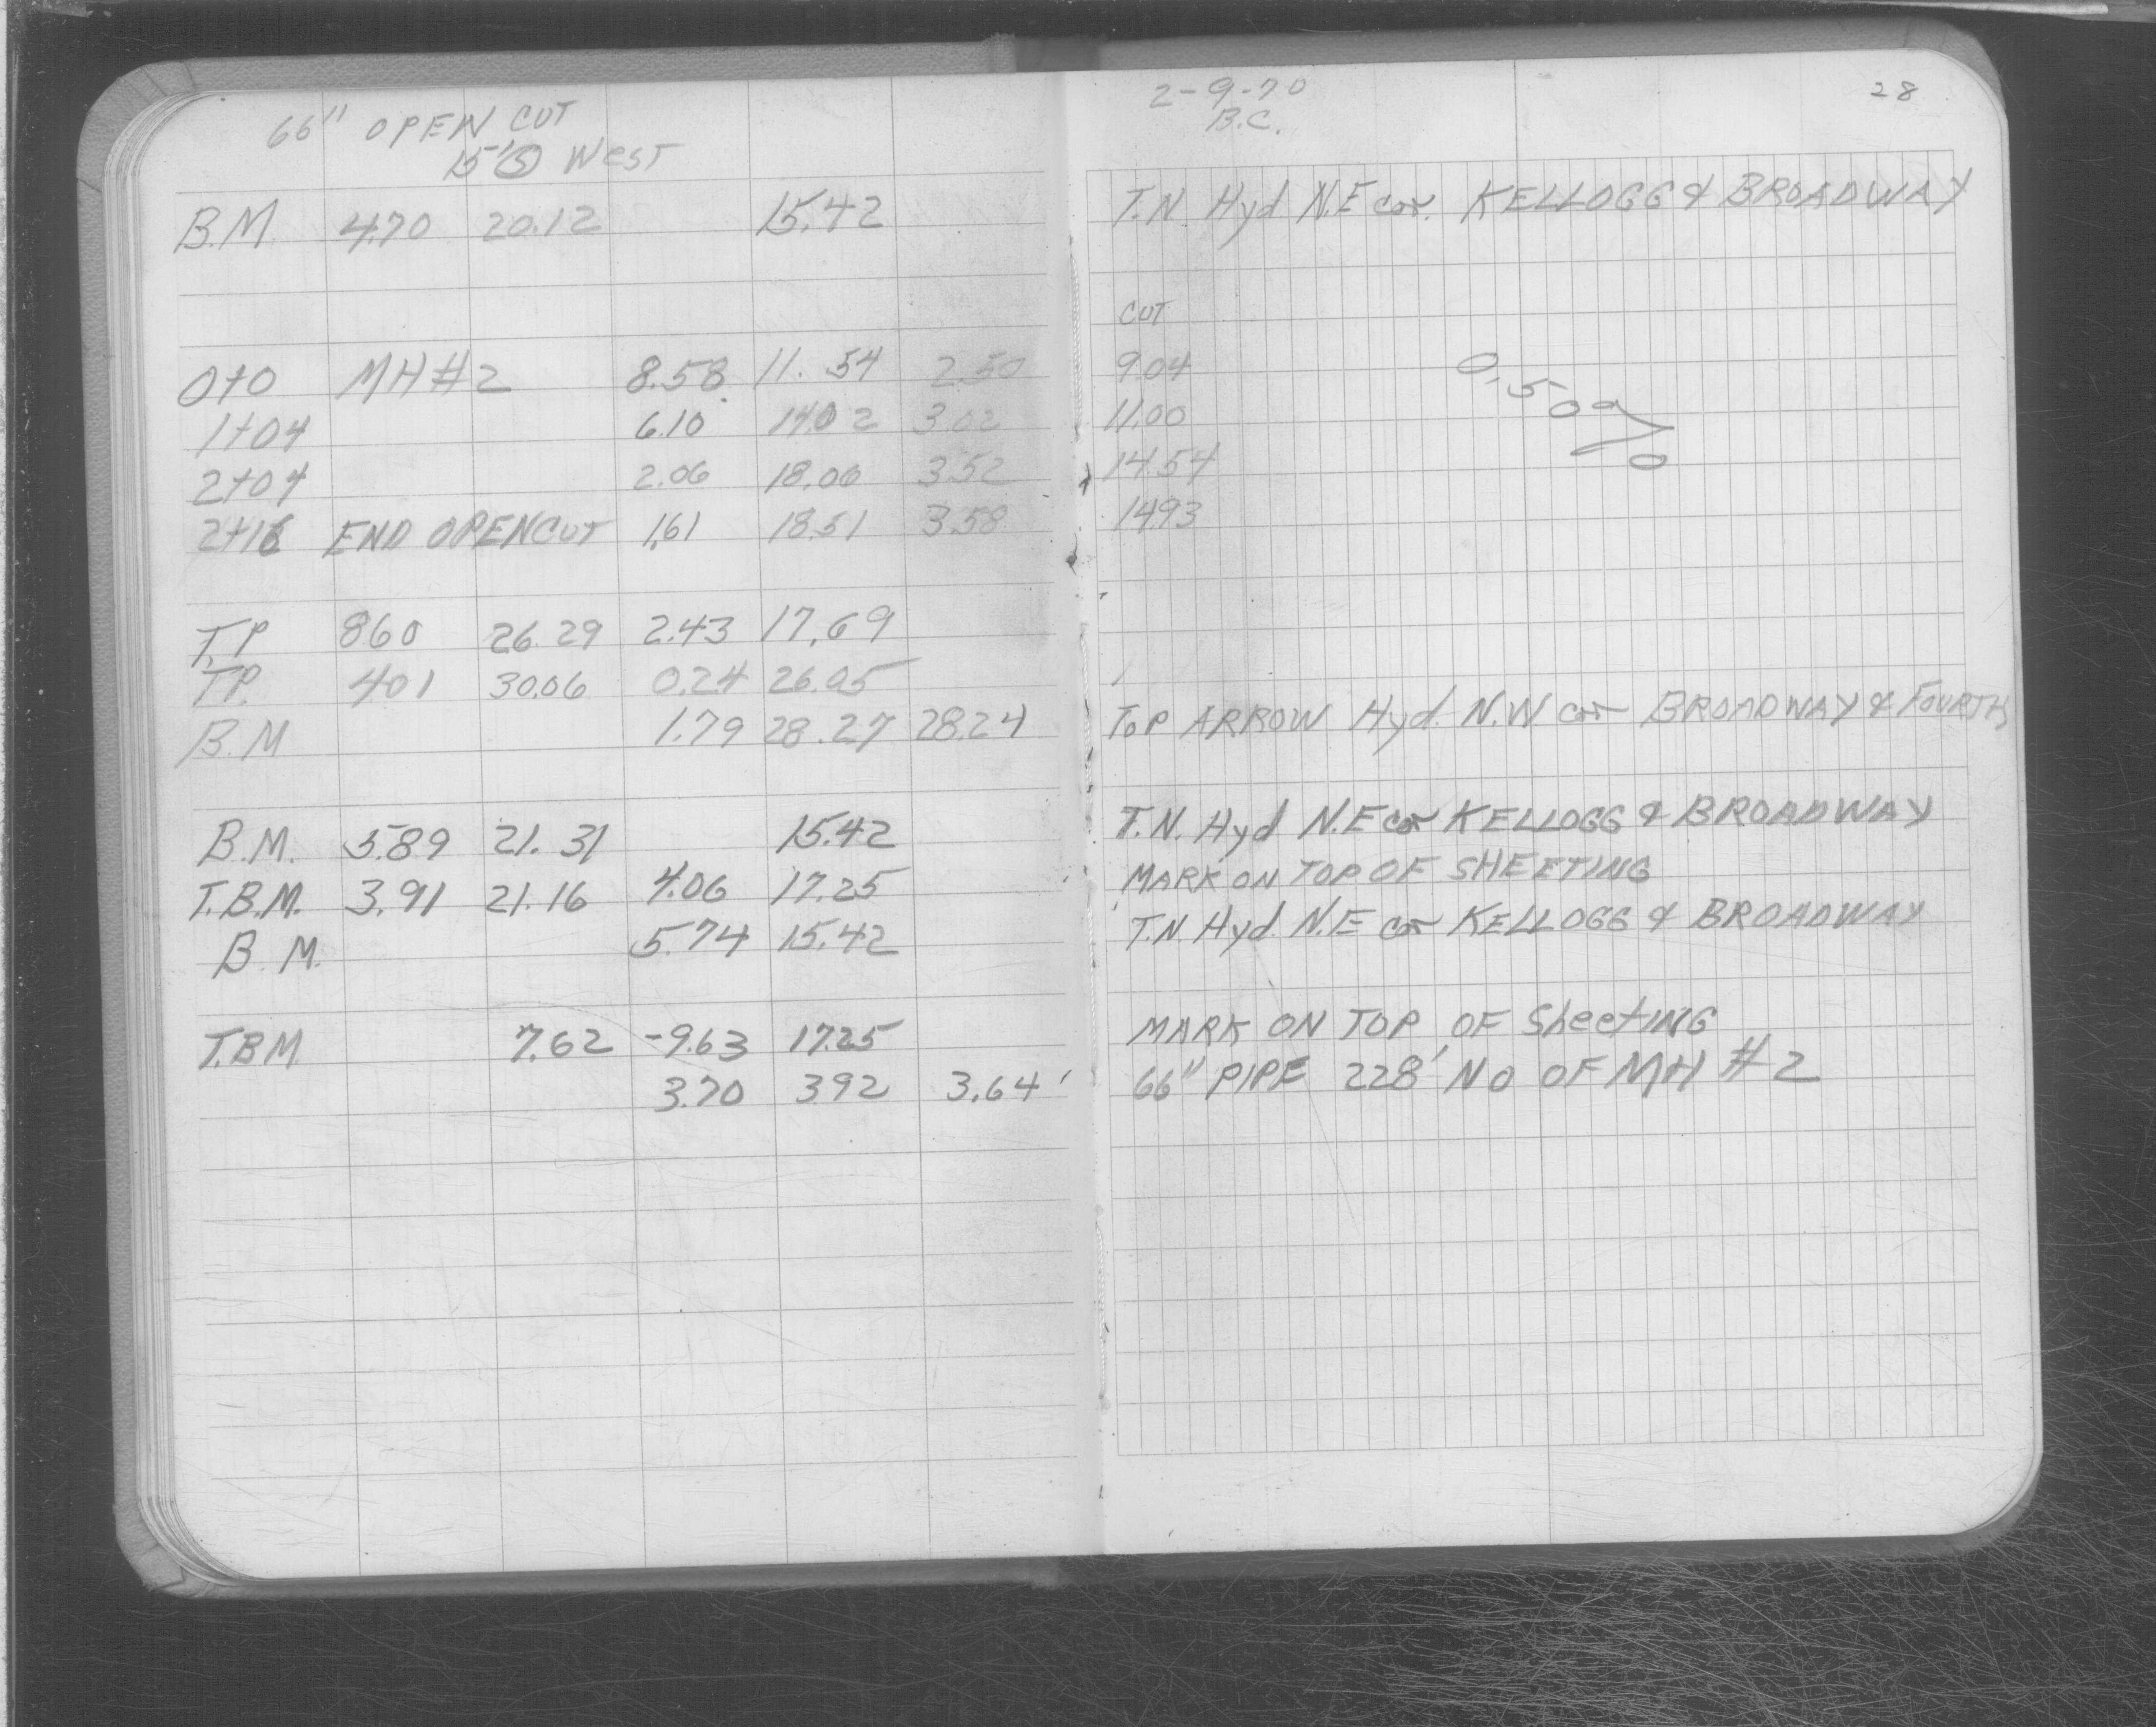 66" OPEN CUT
15' Ⓢ West
B.M. 4.70 20.12 15.42
0+0 MH#2 8.58 11.54 2.50
1+04 6.10 14.02 3.02
2+04 2.06 18.06 3.52
2+16 END OPENCUT 1.61 18.51 3.58
T.P 8.60 26.29 2.43 17.69
T.P. 4.01 30.06 0.24 26.05
B.M 1.79 28.27 28.24
B.M. 5.89 21.31 15.42
T.B.M. 3.91 21.16 4.06 17.25
B.M. 5.74 15.42
T.B.M. 7.62 -9.63 17.25
3.70 3.92 3.64'
2-9-70
B.C.
28
T.N Hyd N.E cor. KELLOGG & BROADWAY
CUT
9.04
11.00
14.54
14.93
0.50%
TOP ARROW Hyd. N.W cor BROADWAY & FOURTH
T.N. Hyd N.E cor KELLOGG & BROADWAY
MARK ON TOP OF SHEETING
T.N. Hyd. N.E cor KELLOGG & BROADWAY
MARK ON TOP OF SheetING
66" PIPE 228' NO OF MH #2